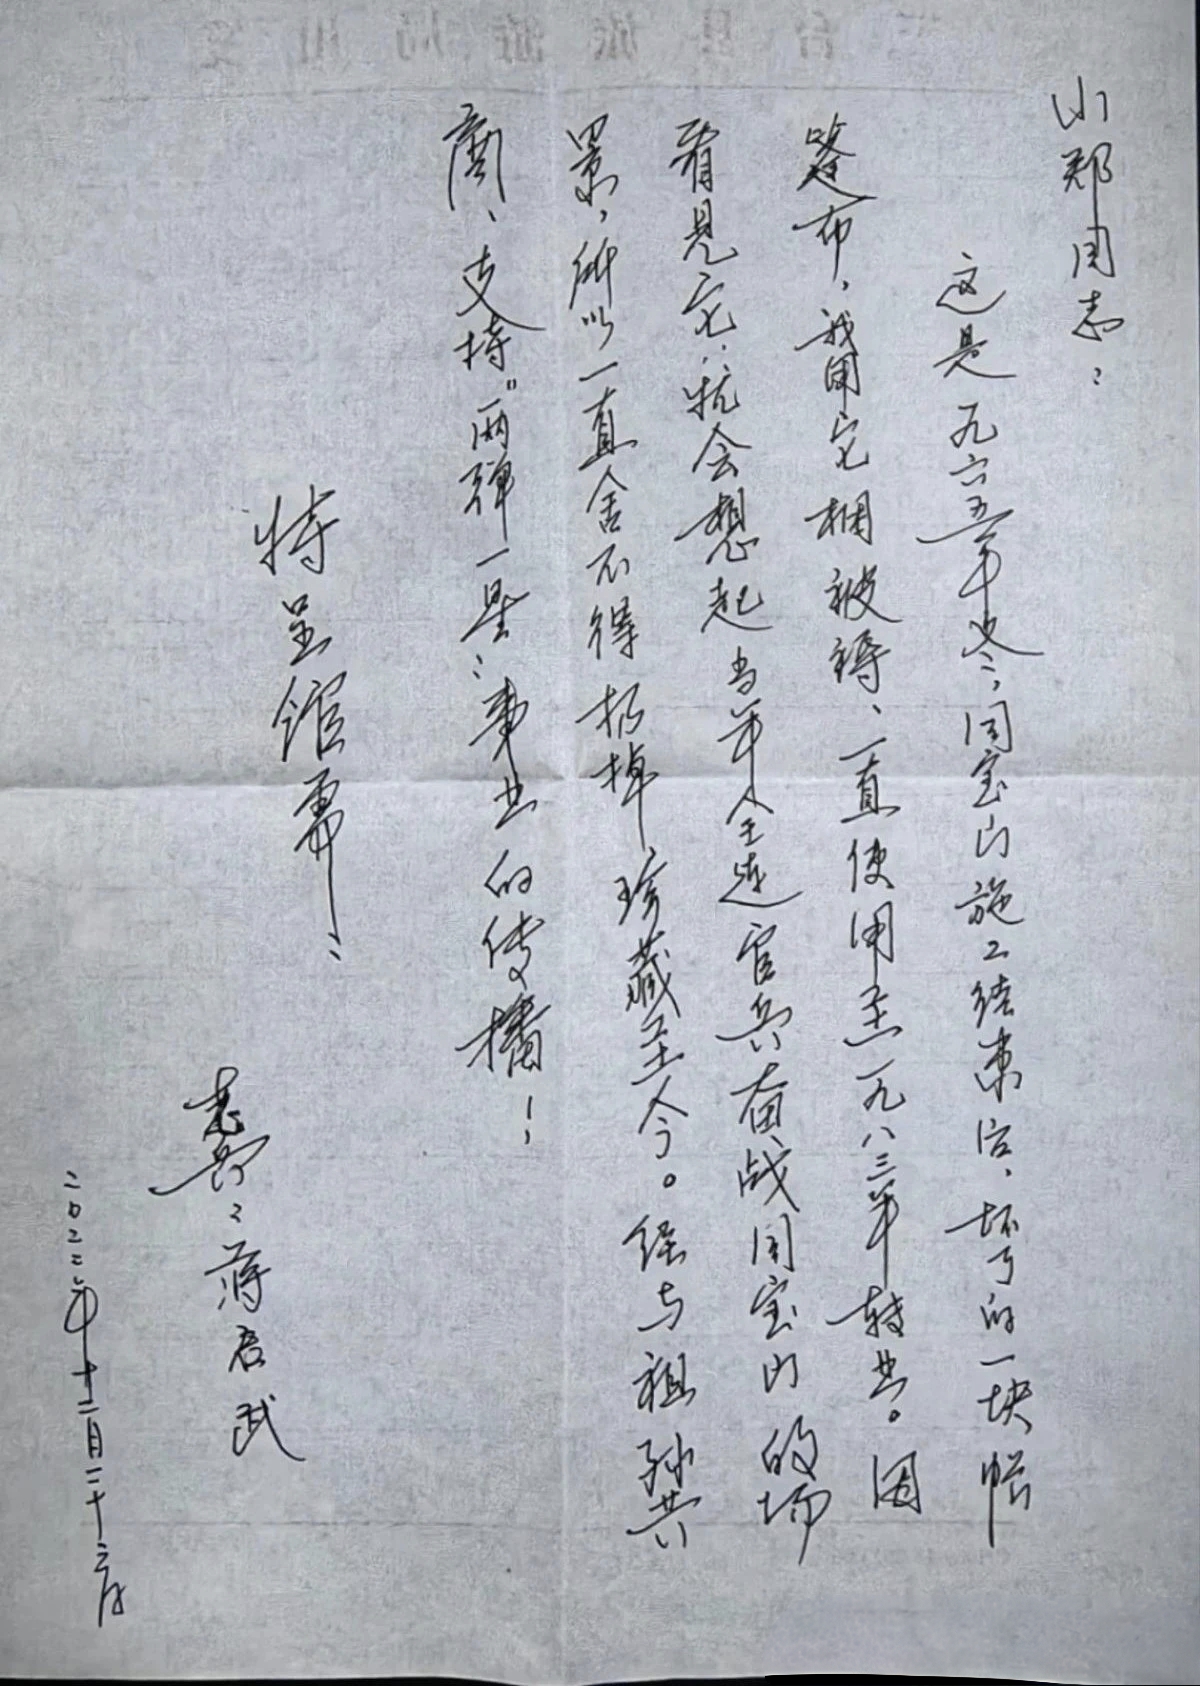 小郑同志：
这是一九六五年冬，国宝山施工结束后，坏了的一块帐
篷布，我用它捆被褥、一直使用至一九八三年转业。因
看见它：就会想起当年全连官兵奋战国宝山的场
景，所以一直舍不得扔掉珍藏至今。经与祖孙共
商、支持“两弹一星”事业的传播！
特呈馆
蒋启武
二〇二二年十二月二十六日
台县旅游局用笺